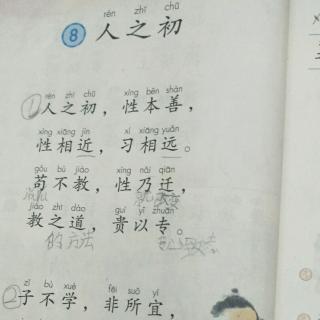 rén zhī chū
8 人之初
rén zhī chū xìng běn shàn
①人之初，性本善，
xìng xiāng jìn xí xiāng yuǎn
性相近，习相远。
gǒu bú jiào xìng nǎi qiān
苟不教，性乃迁，
jiào zhī dào guì yǐ zhuān
教之道，贵以专。
的方法
zǐ bù xué fēi suǒ yí
②子不学，非所宜，